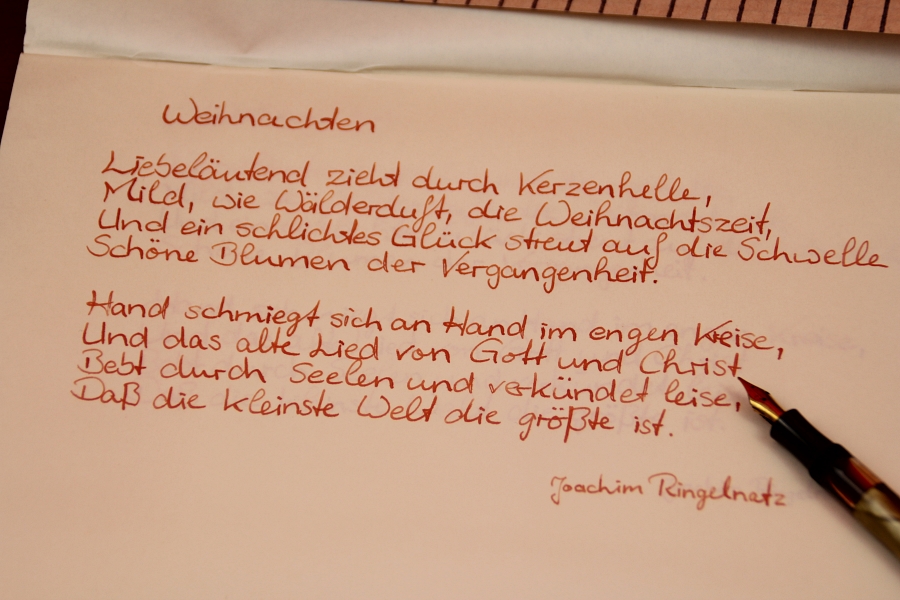 Weihnachten
Liebeläutend zieht durch Kerzenhelle,
Mild, wie Wälderduft, die Weihnachtszeit,
Und ein schlichtes Glück streut auf die Schwelle
Schöne Blumen der Vergangenheit.
Hand schmiegt sich an Hand im engen Kreise,
Und das alte Lied von Gott und Christ
Bebt durch Seelen und verkündet leise,
Daß die kleinste Welt die größte ist.
Joachim Ringelnatz